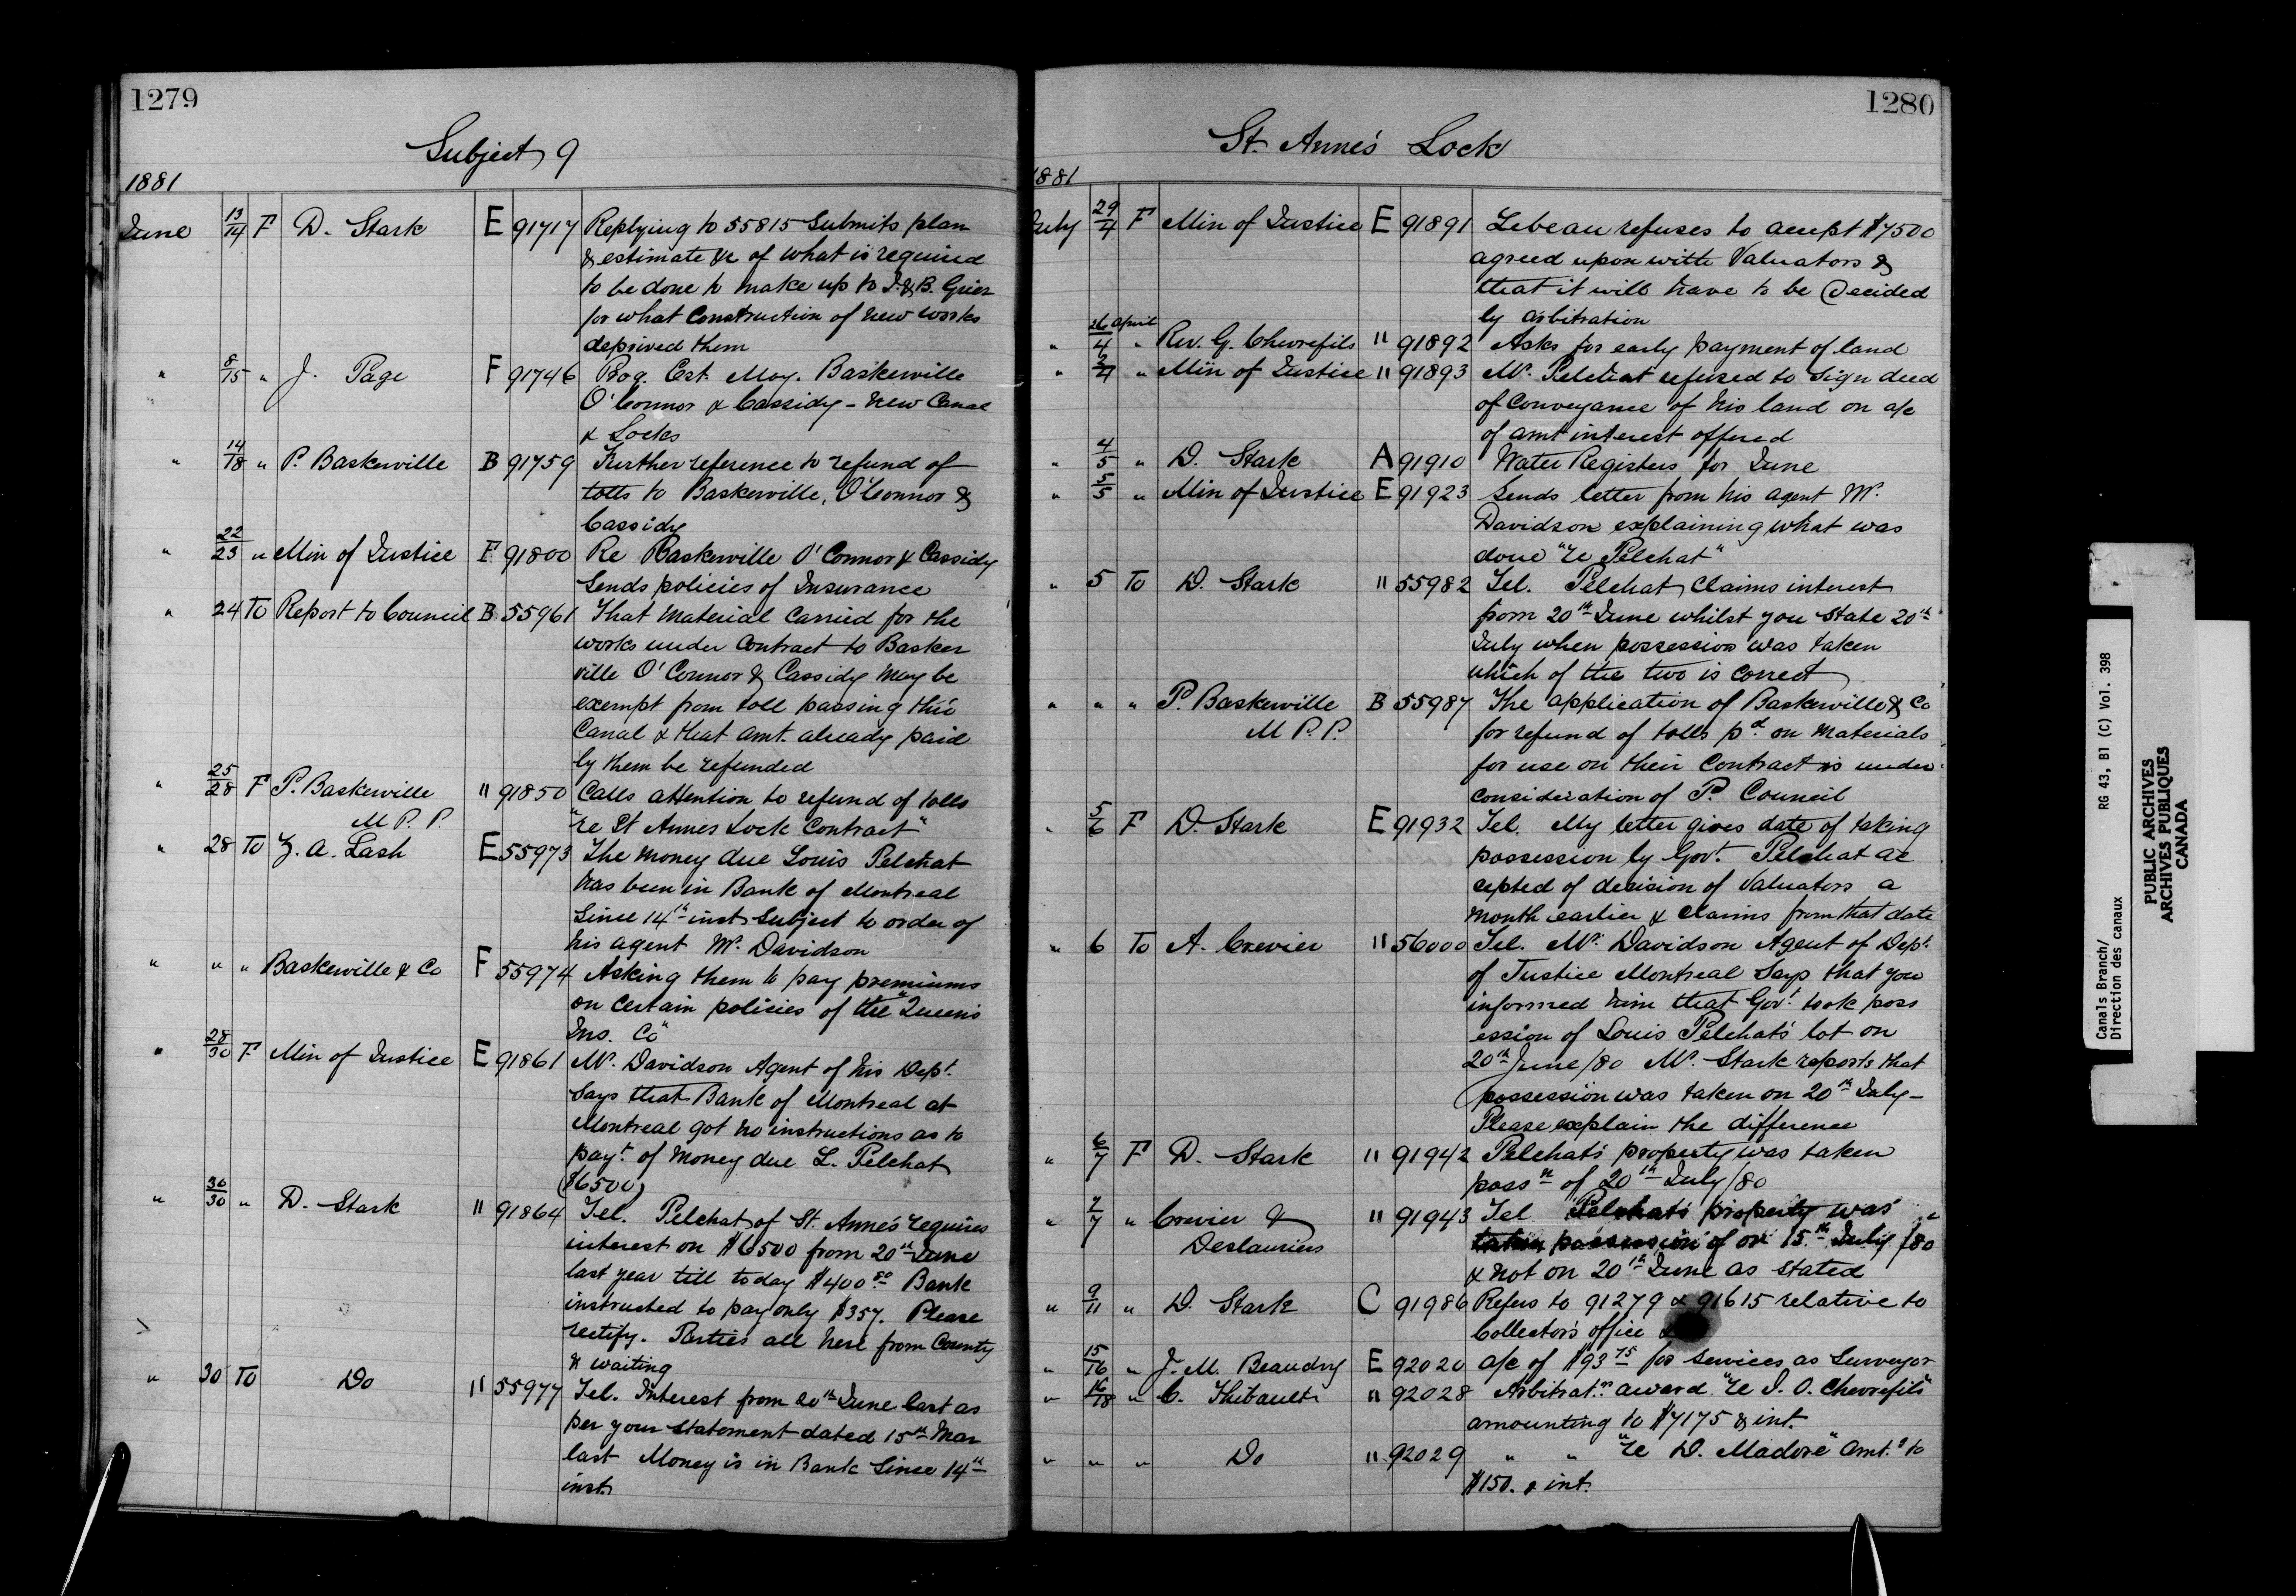 1279
Subject 9
1881
June 13/14 F D. Stark E 91717 Replying to 55815 Submits plan
& estimate &c of what is required
to be done to make up to J. & B. Grier
for what Construction of new works
deprived them
" 8/15 " J. Page F 91746 Prog. Est. May. Baskerville
O'Connor & Cassidy - New Canal
& Locks
" 14/18 " P. Baskerville B 91759 Further reference to refund of
tolls to Baskerville, O'Connor &
Cassidy
" 22/23 " Min of Justice F 91800 Re Baskerville O'Connor & Cassidy
Sends policies of Insurance
" 24 To Report to Council B 55961 That Material Carried for the
works under Contract to Basker
ville O'Connor & Cassidy May be
exempt from toll passing this
Canal & that amt. already paid
by them be refunded
" 25/28 F P. Baskerville " 91850 Calls attention to refund of tolls
M P. P. "re St Annes Lock Contract"
" 28 To Z. A. Lash E 55973 The Money due Louis Pelchat
has been in Bank of Montreal
Since 14th inst Subject to order of
his agent Mr. Davidson
" " " Baskerville & Co F 55974 Asking them to pay premiums
on Certain policies of the "Queen's
Ins. Co"
" 28/30 F Min of Justice E 91861 Mr. Davidson Agent of his Dept.
Says that Bank of Montreal at
Montreal got no instructions as to
payt. of Money due L. Pelchat
($6500)
" 30/30 " D. Stark " 91864 Tel. Pelchat of St. Anne's requires
interest on $6500 from 20th June
last year till today $400 50 Bank
instructed to pay only $357. Please
rectify. Parties all here from County
& waiting
" 30 To Do " 55977 Tel. Interest from 20th June last as
per your Statement dated 15th Mar
last Money is in Bank Since 14th
inst.
1280
St. Anne's Lock
1881
July 29/4 F Min of Justice E 91891 Lebeau refuses to accept $7500
agreed upon with Valuators &
that it will have to be Decided
by arbitration
" 26 April/4 " Rev. G. Chevrefils " 91892 Asks for early payment of land
" 2/4 " Min of Justice " 91893 Mr. Pelchat refused to Sign deed
of Conveyance of his land on a/c
of amt interest offered
" 4/5 " D. Stark A 91910 Water Registers for June
" 5/5 " Min of Justice E 91923 Sends letter from his agent Mr.
Davidson explaining what was
done "re Pelchat"
" 5 To D. Stark " 55982 Tel. Pelchat Claims interest
from 20th June whilst you State 20th
July when possession was taken
which of the two is correct
" " " P. Baskerville B 55987 The application of Baskerville & Co
M P. P. for refund of tolls pd. on Materials
for use on their Contract is under
Consideration of P. Council
" 5/6 F D. Stark E 91932 Tel. My letter gives date of taking
possession by Govt. Pelchat ac
cepted of decision of Valuators a
month earlier & Claims from that date
" 6 To A. Crevier " 56000 Tel. Mr. Davidson Agent of Dept.
of Justice Montreal Says that you
informed him that Govt. took poss
ession of Louis Pelchat's lot on
20th June/80 Mr. Stark reports that
possession was taken on 20th July -
Please explain the difference
" 6/7 F D. Stark " 91942 Pelchat's property was taken
possn of 20th July/80
" 7/7 " Crevier & " 91943 Tel Pelchat's property was
Deslauriers taken possession of on 15th July /80
& not on 20th June as stated
" 9/11 " D. Stark C 91986 Refers to 91279 & 91615 relative to
Collector's office &
" 15/16 " J. M. Beaudry E 92020 a/c of $93 75 for Services as Surveyor
" 16/18 " C. Thibault " 92028 Arbitratn award "re J. O. Chevrefils"
amounting to $7175 & int.
" " " Do " 92029 " " "re D. Madore" Amt.g to
$150. & int.
Canals Branch/
Direction des canaux
RG 43, B1 (C) Vol. 398
PUBLIC ARCHIVES
ARCHIVES PUBLIQUES
CANADA